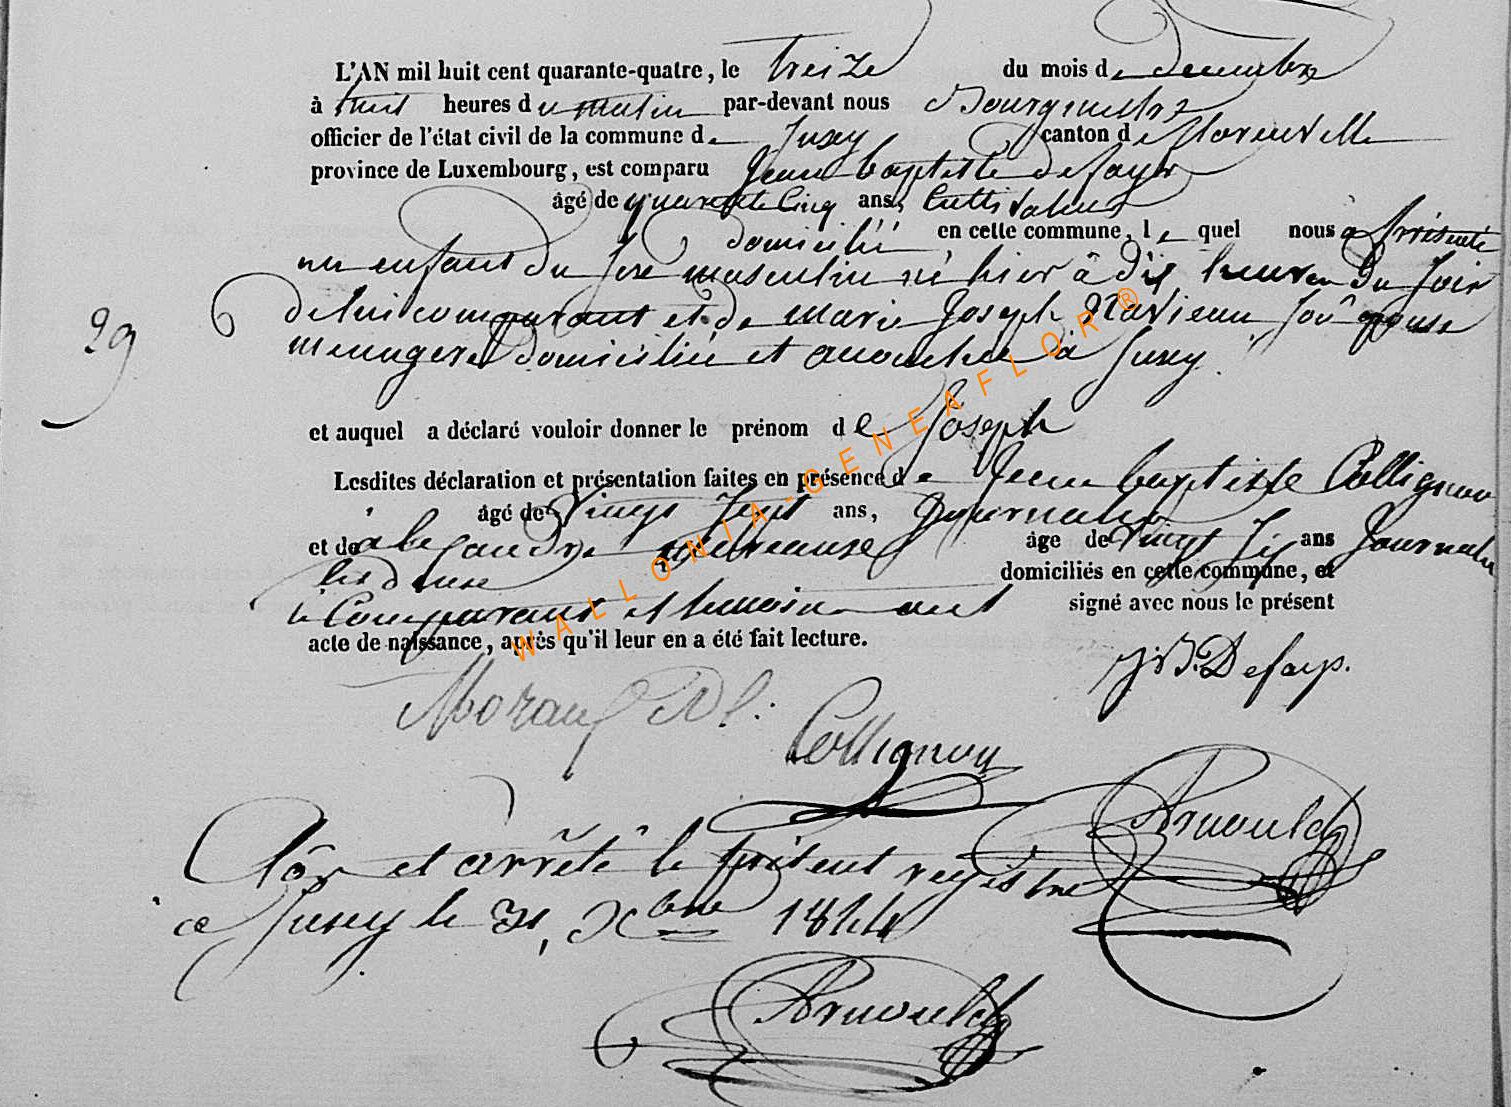 L'AN mil huit cent quarante-quatre, le treize du mois de decembre
à huit heures du matin par-devant nous Bourgmestre
officier de l'état civil de la commune de Jusey canton de florenville
province de Luxembourg, est comparu Jean baptiste defays
âgé de quarante Cinq ans, Cultivateur
domicilié en cette commune, le quel nous à présenté
un enfant du sexe masculin né hier à dix heures du soir
de lui comparant et de marie Joseph son épouse
menagere domiciliée et accouchée à Jusey.
29
et auquel a déclaré vouloir donner le prénom de Joseph
Lesdites déclaration et présentation faites en présence de Jean baptiste Collignon
âgé de Vingt Sept ans, Journalier
et de âge de Vingt Six ans Journalier
domiciliés en cette commune, et
le Comparant et temoins ont signé avec nous le présent
acte de naissance, après qu'il leur en a été fait lecture.
J.B. Defays.
Collignon
Arnould
Clos et arrêté le présent registre
a Jusey le 31, Xbre 1844
Arnould
WALLONIA-GENEAFLOR®